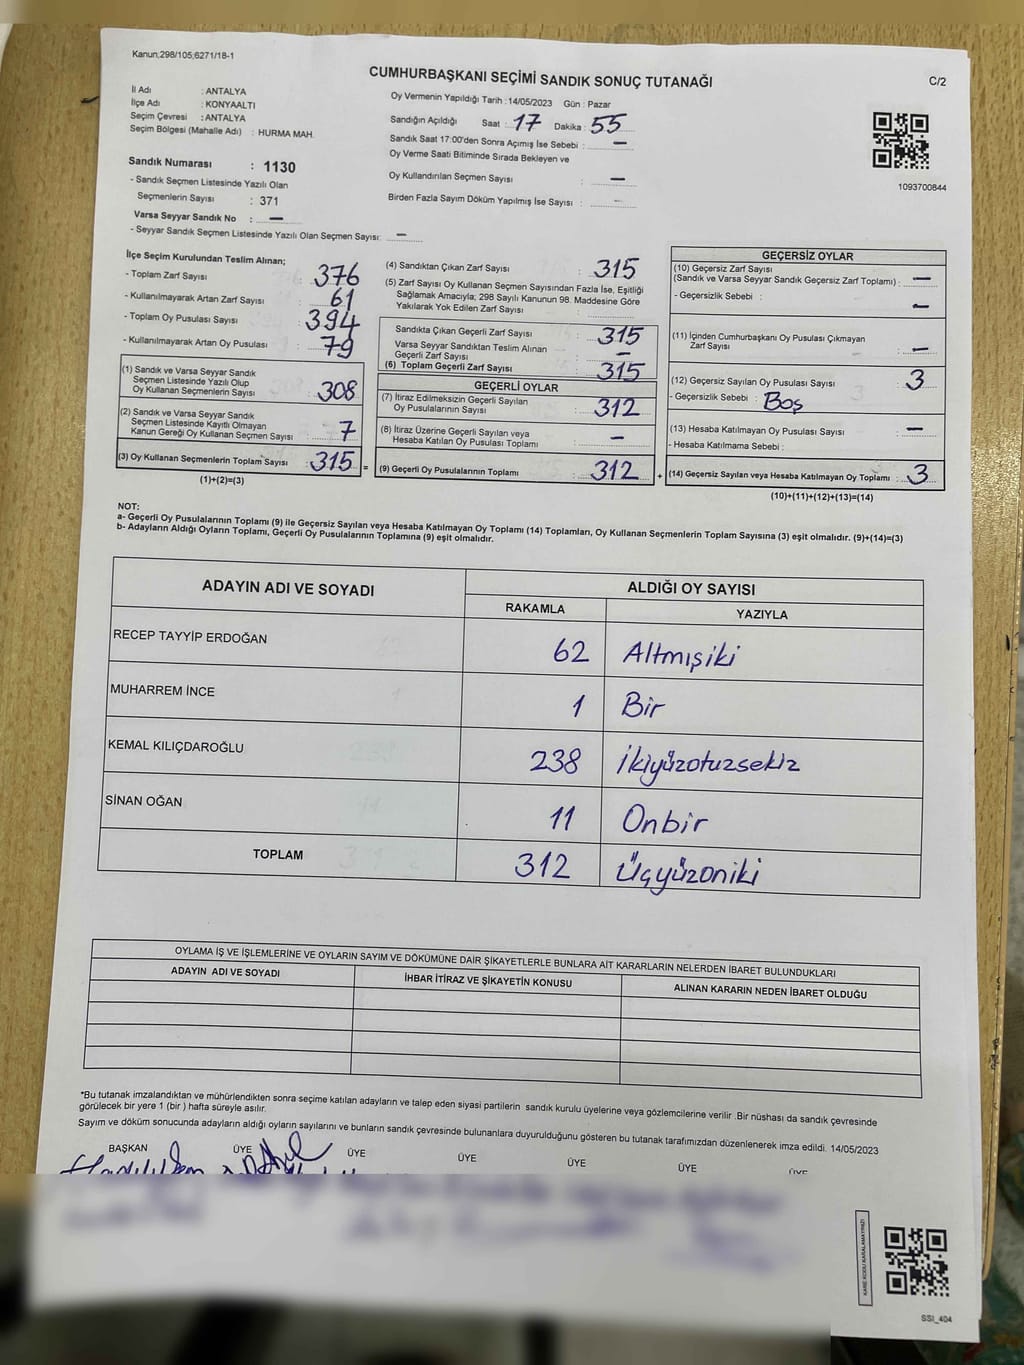 Kanun;298/105;6271/18-1
CUMHURBAŞKANI SEÇİMİ SANDIK SONUÇ TUTANAĞI
C/2
İl Adı : ANTALYA
İlçe Adı : KONYAALTI
Seçim Çevresi : ANTALYA
Seçim Bölgesi (Mahalle Adı) : HURMA MAH.
Sandık Numarası : 1130
- Sandık Seçmen Listesinde Yazılı Olan
Seçmenlerin Sayısı : 371
Varsa Seyyar Sandık No : —
- Seyyar Sandık Seçmen Listesinde Yazılı Olan Seçmen Sayısı: —
Oy Vermenin Yapıldığı Tarih : 14/05/2023 Gün : Pazar
Sandığın Açıldığı Saat : 17 Dakika : 55
Sandık Saat 17:00'den Sonra Açımış İse Sebebi : —
Oy Verme Saati Bitiminde Sırada Bekleyen ve
Oy Kullandırılan Seçmen Sayısı : —
Birden Fazla Sayım Döküm Yapılmış İse Sayısı : —
1093700844
İlçe Seçim Kurulundan Teslim Alınan;
- Toplam Zarf Sayısı : 376
- Kullanılmayarak Artan Zarf Sayısı : 61
- Toplam Oy Pusulası Sayısı : 394
- Kullanılmayarak Artan Oy Pusulası : 79
(1) Sandık ve Varsa Seyyar Sandık
Seçmen Listesinde Yazılı Olup
Oy Kullanan Seçmenlerin Sayısı : 308
(2) Sandık ve Varsa Seyyar Sandık
Seçmen Listesinde Kayıtlı Olmayan
Kanun Gereği Oy Kullanan Seçmen Sayısı : 7
(3) Oy Kullanan Seçmenlerin Toplam Sayısı : 315 =
(1)+(2)=(3)
(4) Sandıktan Çıkan Zarf Sayısı : 315
(5) Zarf Sayısı Oy Kullanan Seçmen Sayısından Fazla İse, Eşitliği
Sağlamak Amacıyla; 298 Sayılı Kanunun 98. Maddesine Göre
Yakılarak Yok Edilen Zarf Sayısı :
Sandıkta Çıkan Geçerli Zarf Sayısı : 315
Varsa Seyyar Sandıktan Teslim Alınan
Geçerli Zarf Sayısı : —
(6) Toplam Geçerli Zarf Sayısı : 315
GEÇERLİ OYLAR
(7) İtiraz Edilmeksizin Geçerli Sayılan
Oy Pusulalarının Sayısı : 312
(8) İtiraz Üzerine Geçerli Sayılan veya
Hesaba Katılan Oy Pusulası Toplamı : —
(9) Geçerli Oy Pusulalarının Toplamı : 312 +
GEÇERSİZ OYLAR
(10) Geçersiz Zarf Sayısı
(Sandık ve Varsa Seyyar Sandık Geçersiz Zarf Toplamı) : —
- Geçersizlik Sebebi : —
(11) İçinden Cumhurbaşkanı Oy Pusulası Çıkmayan
Zarf Sayısı : —
(12) Geçersiz Sayılan Oy Pusulası Sayısı : 3
- Geçersizlik Sebebi : Boş
(13) Hesaba Katılmayan Oy Pusulası Sayısı : —
- Hesaba Katılmama Sebebi :
(14) Geçersiz Sayılan veya Hesaba Katılmayan Oy Toplamı : 3
(10)+(11)+(12)+(13)=(14)
NOT:
a- Geçerli Oy Pusulalarının Toplamı (9) ile Geçersiz Sayılan veya Hesaba Katılmayan Oy Toplamı (14) Toplamları, Oy Kullanan Seçmenlerin Toplam Sayısına (3) eşit olmalıdır. (9)+(14)=(3)
b- Adayların Aldığı Oyların Toplamı, Geçerli Oy Pusulalarının Toplamına (9) eşit olmalıdır.
ADAYIN ADI VE SOYADI
ALDIĞI OY SAYISI
RAKAMLA YAZIYLA
RECEP TAYYİP ERDOĞAN 62 Altmışiki
MUHARREM İNCE 1 Bir
KEMAL KILIÇDAROĞLU 238 İkiyüzotuzsekiz
SİNAN OĞAN 11 Onbir
TOPLAM 312 Üçyüzoniki
OYLAMA İŞ VE İŞLEMLERİNE VE OYLARIN SAYIM VE DÖKÜMÜNE DAİR ŞİKAYETLERLE BUNLARA AİT KARARLARIN NELERDEN İBARET BULUNDUKLARI
ADAYIN ADI VE SOYADI İHBAR İTİRAZ VE ŞİKAYETİN KONUSU ALINAN KARARIN NEDEN İBARET OLDUĞU
*Bu tutanak imzalandıktan ve mühürlendikten sonra seçime katılan adayların ve talep eden siyasi partilerin sandık kurulu üyelerine veya gözlemcilerine verilir .Bir nüshası da sandık çevresinde
görülecek bir yere 1 (bir ) hafta süreyle asılır.
Sayım ve döküm sonucunda adayların aldığı oyların sayılarını ve bunların sandık çevresinde bulunanlara duyurulduğunu gösteren bu tutanak tarafımızdan düzenlenerek imza edildi. 14/05/2023
BAŞKAN ÜYE ÜYE ÜYE ÜYE ÜYE ÜYE
KARE KODU KARALAMAYINIZ!
SSI_404